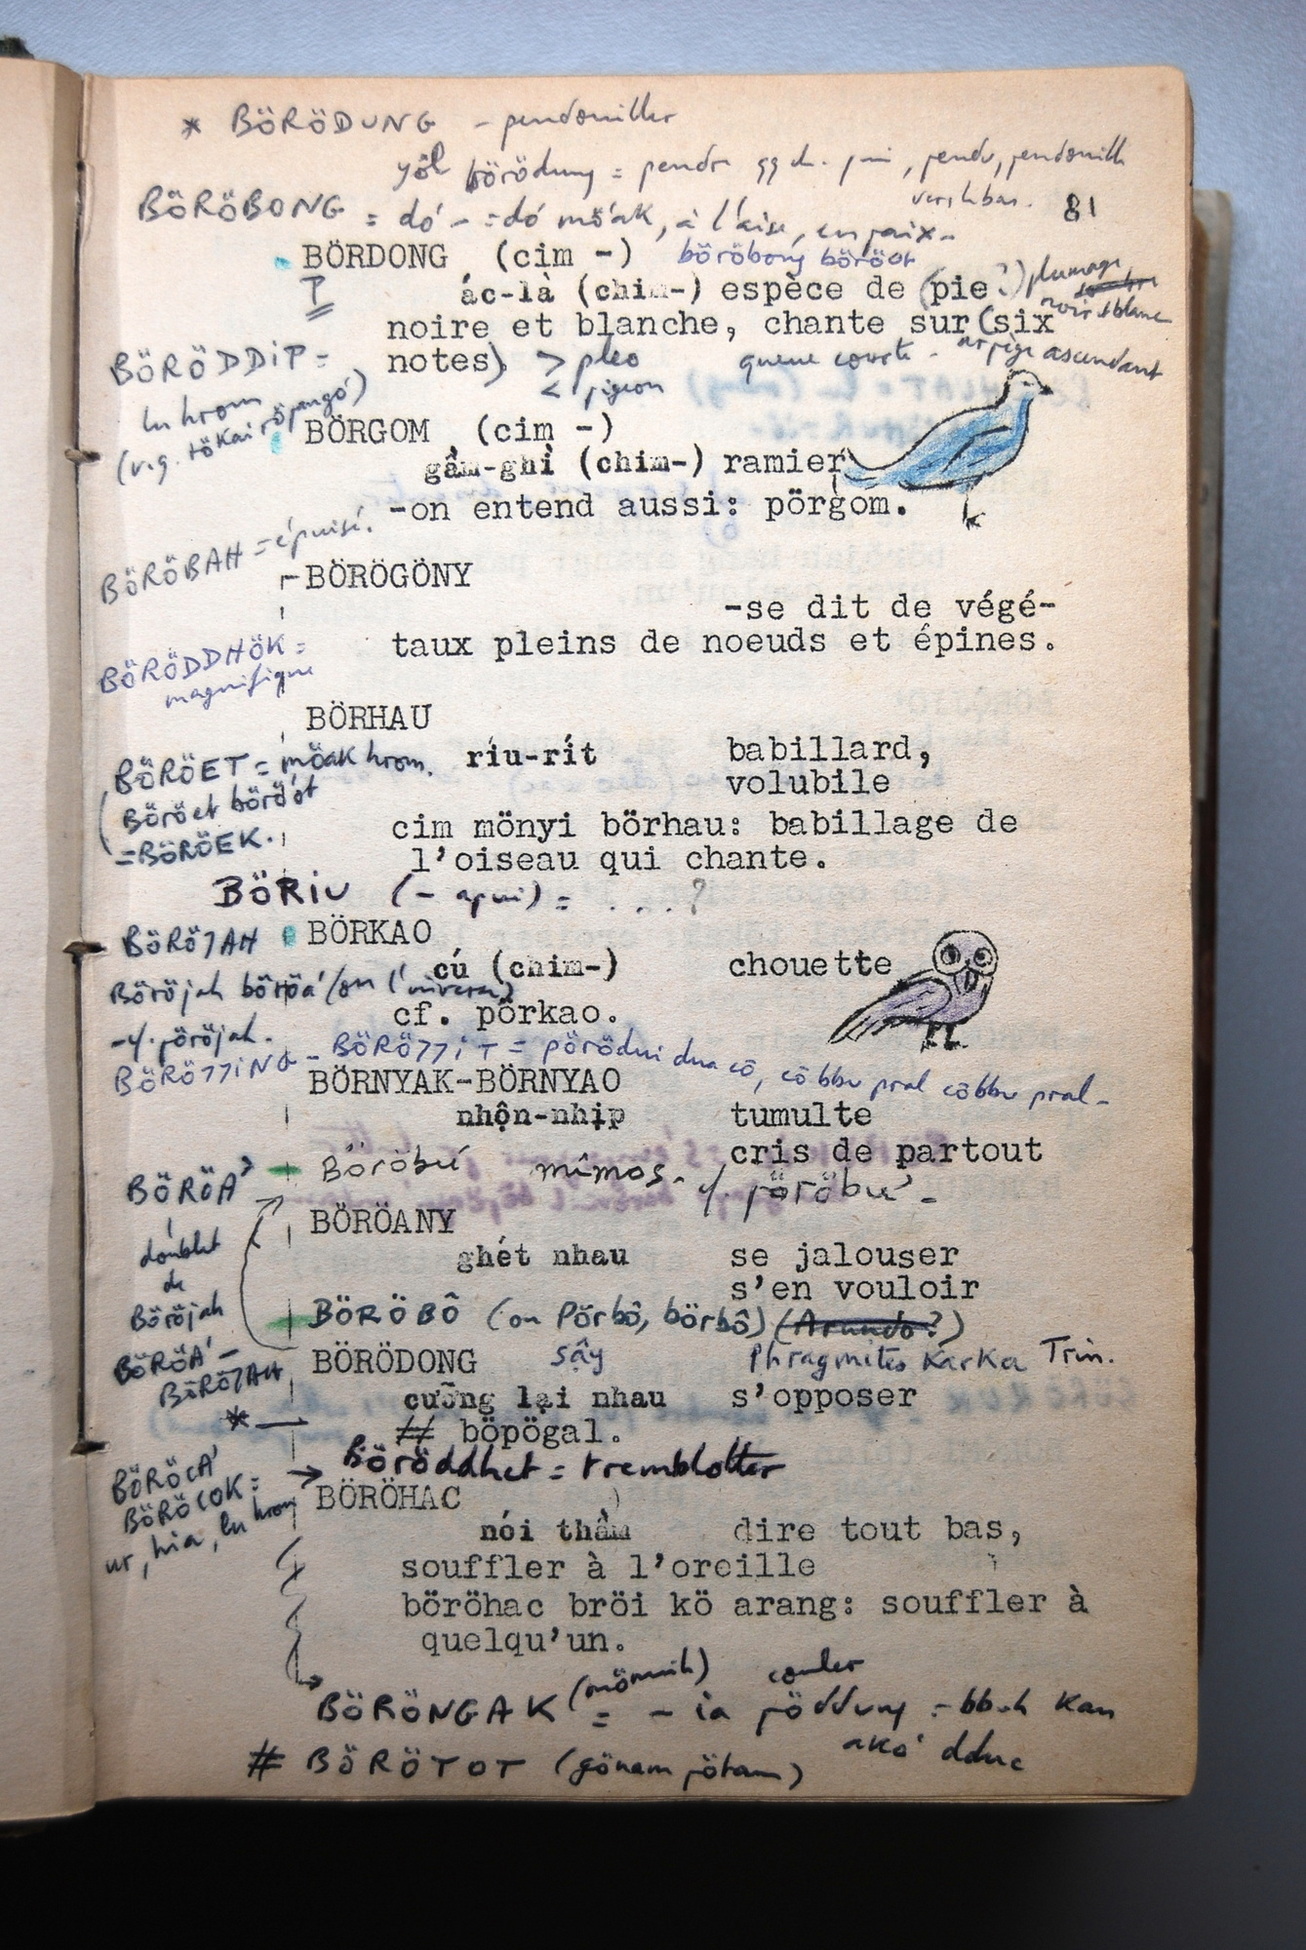 * BÖRÖDUNG - pendouiller
yŏl börödung = pendre qq ch. pendu,
vers le bas. 81
BÖRÖBONG = dó - = dó möak, à l'aise, en paix-
BÖRDONG (cim -) böröbong böröot
ác-là (chim-) espèce de (pie?) plumage
noir et blanc
noire et blanche, chante sur (six
BÖRÖDDIP = notes). > pleo queue courte - arpège ascendant
< pigeon
lu hrom
(v.g. tökai röpangó)
BÖRGOM (cim -)
gầm-ghì (chim-) ramier
-on entend aussi: pörgom.
BÖRÖBAH = épuisé.
BÖRÖGÖNY
-se dit de végé-
taux pleins de noeuds et épines.
BÖRÖDDHÖK =
magnifique
BÖRHAU
ríu-rít babillard,
BÖRÖET = möak hrom.
volubile
(Böröet börööt
= BÖRÖEK.
cim mönyi börhau: babillage de
l'oiseau qui chante.
BÖRIU (- apui) = . . . . ?
BÖRÖJAH BÖRKAO
cú (chim-) chouette
Böröjah böröá (ou l'inverse)
cf. pörkao.
- cf. pöröjah.
BÖRÖJJING - BÖRÖJJIT = pörödui dua cô, côbbu pral côbbu pral-
BÖRNYAK-BÖRNYAO
nhộn-nhịp tumulte
cris de partout
BÖRÖÁ Böröbú mimos. cf. pöröbú -
BÖRÖANY
doublet
de
Böröjah
ghét nhau se jalouser
s'en vouloir
BÖRÖBÔ (ou Pörbô, börbô) (Arundo?)
BÖRÖÁ -
BÖRÖJAH
BÖRÖDONG sậy Phragmites Karka Trin.
cưỡng lại nhau s'opposer
* # böpögal.
Böröddhet = tremblotter
BÖRÖCÁ
BÖRÖCOK =
ur, hia, lu hrom
BÖRÖHAC
nói thầm dire tout bas,
souffler à l'oreille
böröhac bröi kö arang: souffler à
quelqu'un.
BÖRÖNGAK (mönuih) = - ia pöddung couler = bboh kan
akó dduc
# BÖRÖTOT (gönam pötam)